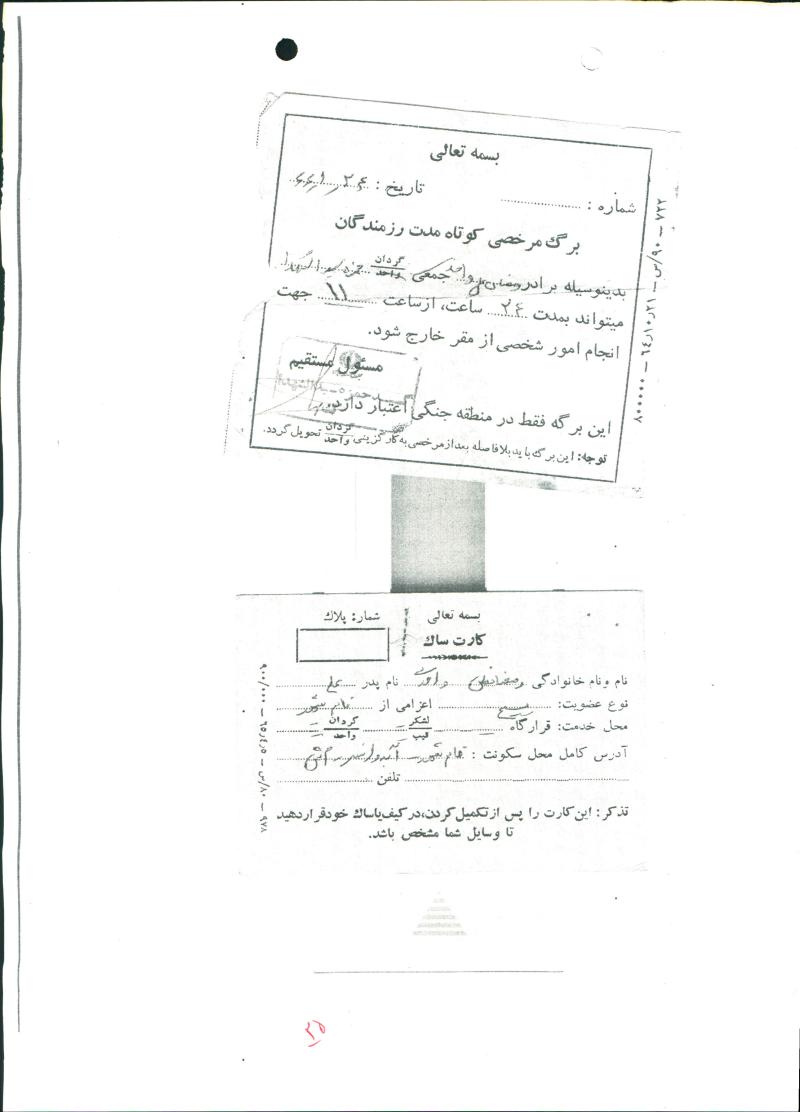 بسمه تعالی
شماره :
تاریخ : ۲۶
برگ مرخصی کوتاه مدت رزمندگان
بدینوسیله برادر رمضانعلی جمعی گردان واحد حمزه سیدالشهدا
میتواند بمدت ۲۴ ساعت، از ساعت ۱۱ جهت
انجام امور شخصی از مقر خارج شود.
مسئول مستقیم
این برگه فقط در منطقه جنگی اعتبار دارد.
توجه: این برگ باید بلافاصله بعد از مرخصی به کارگزینی گردان واحد تحویل گردد.
۷۲۲ – ۹۰/س – ۶۴/۱۰/۲۱ – ۸۰۰۰۰۰
بسمه تعالی
شماره پلاك
کارت ساك
نام و نام خانوادگی رمضانعلی نام پدر علی
نوع عضویت: بسیج اعزامی از قائم شهر
محل خدمت: قرارگاه لشکر تیپ گردان واحد
آدرس کامل محل سکونت : قائم شهر
تلفن
تذکر: این کارت را پس از تکمیل کردن، در کیف یا ساك خود قرار دهید
تا وسایل شما مشخص باشد.
۹۷۸ – ۸۰/س – ۶۵/۴/۵ – ۹۰۰/۰۰۰